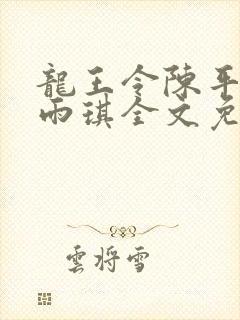 龍王令陳平
雨琪全文免
雲将雪